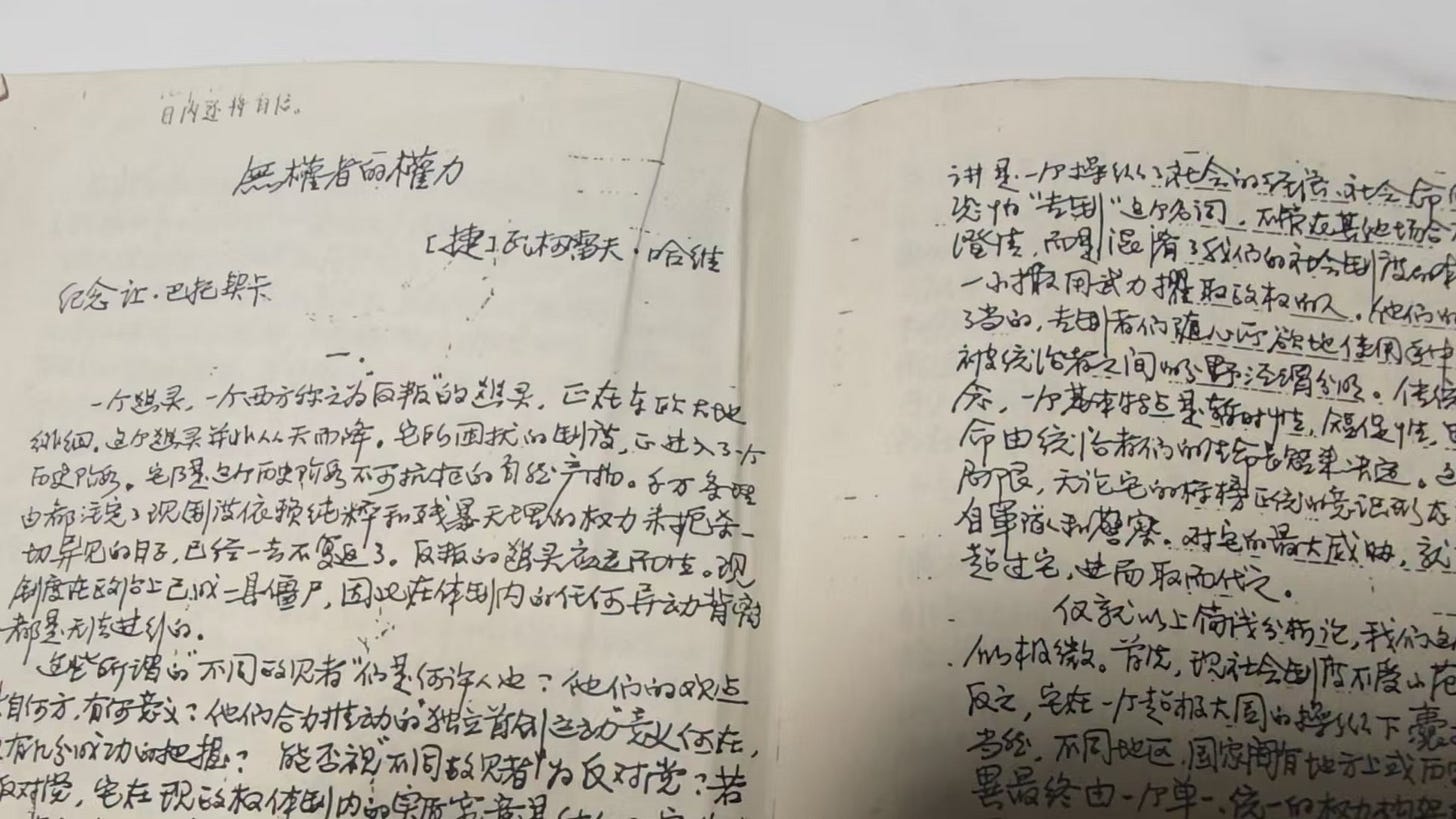 日内还将自信。
無權者的權力
[捷]瓦柯雷夫·哈维
纪念让·巴托契卡
一.
一个幽灵,一个西方称之为"反叛"的幽灵,正在东欧大地
徘徊。这个幽灵并非从天而降。它所困扰的制度,正进入了一个
历史阶段。它是这个历史阶段不可抗拒的自然产物。千万条理
由都注定了现制度依赖纯粹和残暴无理的权力来扼杀一
切异见的日子,已经一去不复返了。反叛的幽灵应运而生。现
制度在政治上已成一具僵尸,因此在体制内的任何异动背离
都是无法进行的。
这些所谓的"不同政见者"们是何许人也?他们的观点
自何方,有何意义?他们合力推动的"独立首创运动"意义何在,
有几分成功的把握?能否视"不同政见者"为反对党?若
反对党,它在现政权体制内的实质
讲是一个操纵了社会的经济、社会命
"专制"这个名词,不管在其他场合
澄清,而是混淆了我们的社会制度的本
一小撮用武力攫取政权的人。他们的
了当的,专制者们随心所欲地使用手中
被统治者之间的分野泾渭分明。传统
念,一个基本特点是暂时性,短促性,
命由统治者们的生命长短来决定。这
局限,无论它的标榜正统的意识形态
自军队和警察。对它的最大威胁,就
超过它,进而取而代之。
仅就以上简浅分析论,我们这
似极微。首先,现社会制度不受小范
反之,它在一个超级大国的操纵下
当然,不同地区,国家间有地方上或历
異最终由一个单一、统一的权力构架